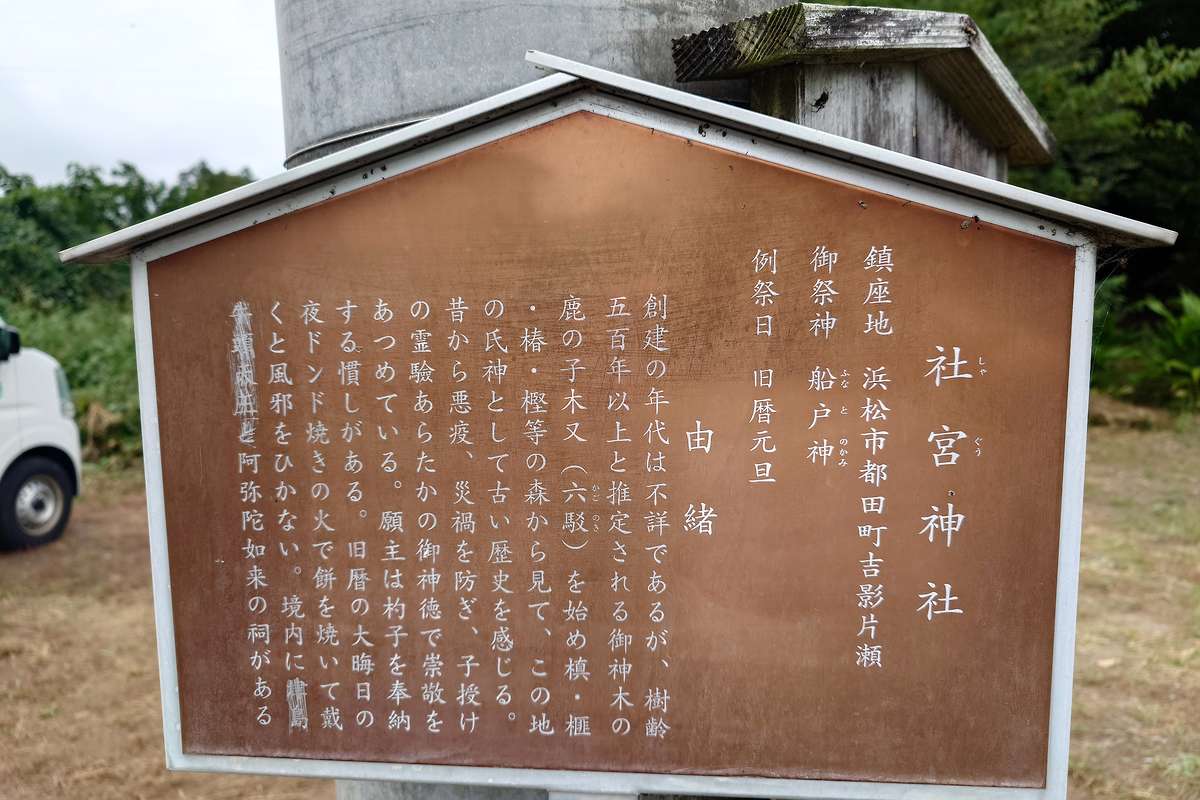 社宮神社
しゃぐう
鎮座地 浜松市都田町吉影片瀬
御祭神 船戸神
ふなとのかみ
例祭日 旧暦元旦
由緒
創建の年代は不詳であるが、樹齢
五百年以上と推定される御神木の
鹿の子木又(六駁)を始め槙・榧
かごのき
・椿・樫等の森から見て、この地
の氏神として古い歴史を感じる。
昔から悪疫、災禍を防ぎ、子授け
の霊驗あらたかの御神徳で崇敬を
あつめている。願主は杓子を奉納
する慣しがある。旧暦の大晦日の
夜ドンド焼きの火で餅を焼いて戴
くと風邪をひかない。境内に
と阿弥陀如来の祠がある